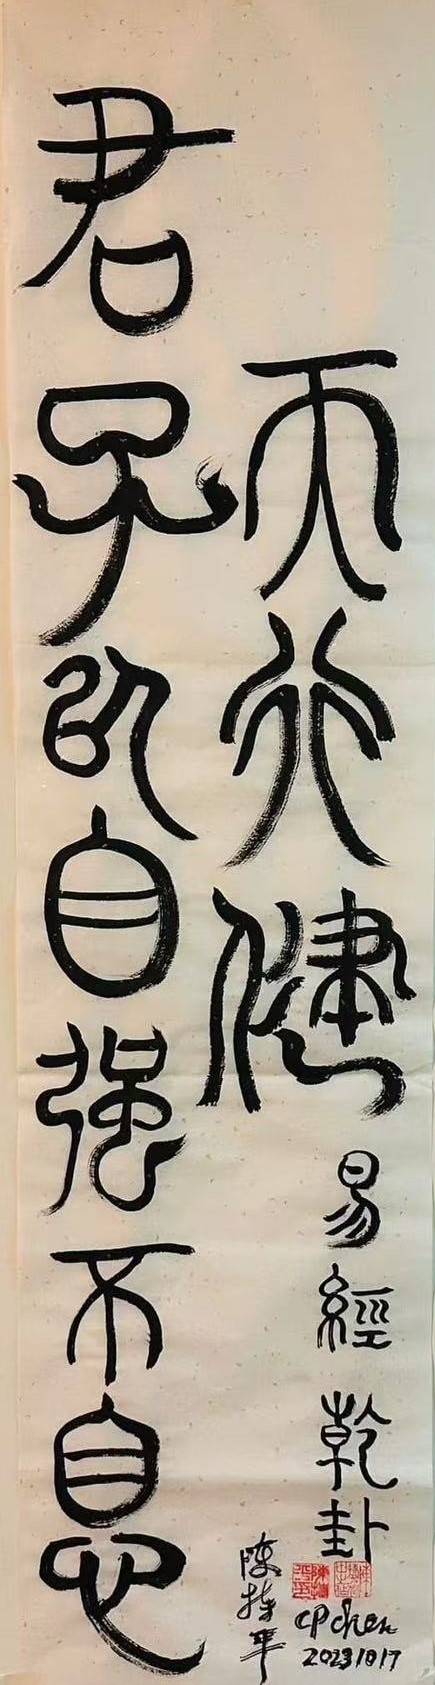 天行健
君子以自强不息
易經 乾卦
陈持平
CP chen
20231017